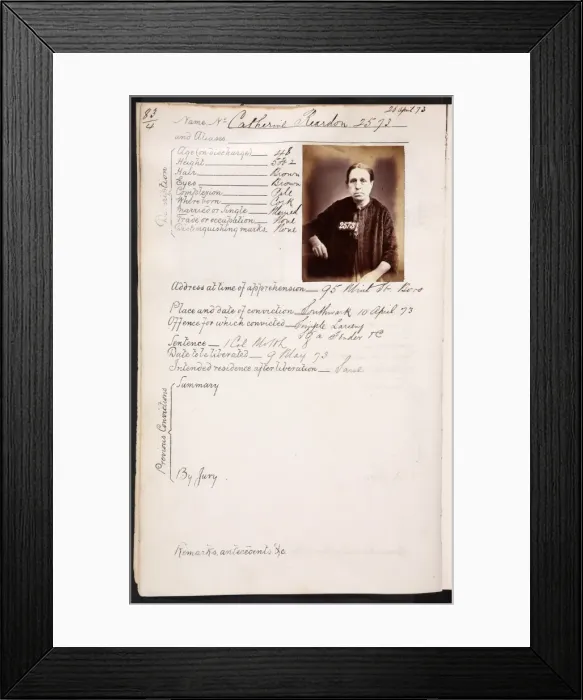 83
26 April 73
Name, No. Catherine Reardon 2573
and Aliases
Description
Age (on discharge) 48
Height 5ft 2
Hair Brown
Eyes Brown
Complexion Pale
Where born Cork
Married or Single Married
Trade or occupation None
Distinguishing marks None
2573
Address at time of apprehension 95 Mint St. Boro
Place and date of conviction Southwark 10 April 73
Offence for which convicted Simple Larceny
of a Fender
Sentence 1 Cal Month
Date to be liberated 9 May 73
Intended residence after liberation Same
Previous Convictions
Summary
By Jury.
Remarks, antecedents &c